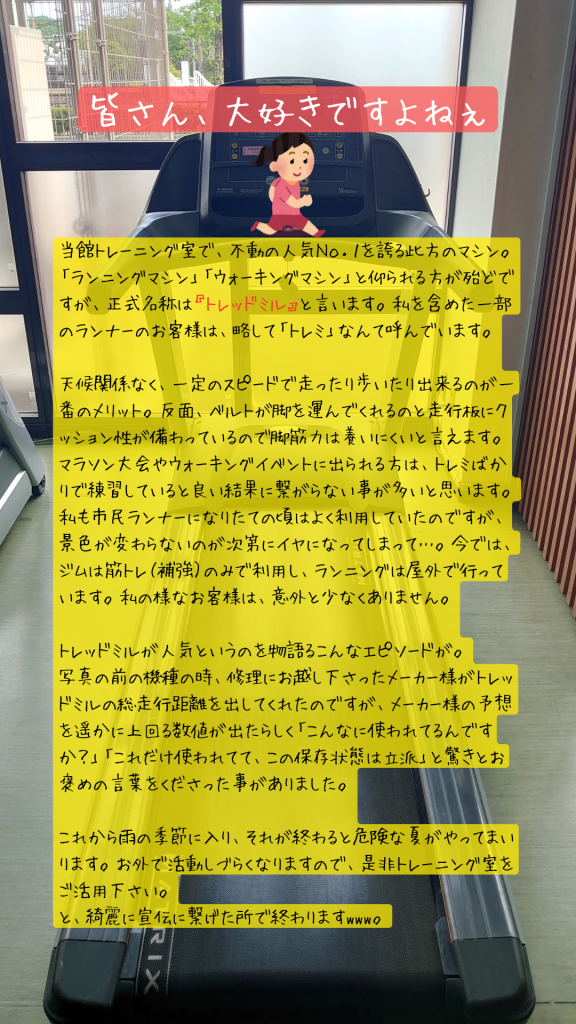 皆さん、大好きですよねぇ
当館トレーニング室で、不動の人気No.1を誇る此方のマシン。
「ランニングマシン」「ウォーキングマシン」と仰られる方が殆どで
すが、正式名称は『トレッドミル』と言います。私を含めた一部
のランナーのお客様は、略して「トレミ」なんて呼んでいます。
天候関係なく、一定のスピードで走ったり歩いたり出来るのが一
番のメリット。反面、ベルトが脚を運んでくれるのと走行板にク
ッション性が備わっているので脚筋力は養いにくいと言えます。
マラソン大会やウォーキングイベントに出られる方は、トレミばか
りで練習していると良い結果に繋がらない事が多いと思います。
私も市民ランナーになりたての頃はよく利用していたのですが、
景色が変わらないのが次第にイヤになってしまって…。今では、
ジムは筋トレ(補強)のみで利用し、ランニングは屋外で行って
います。私の様なお客様は、意外と少なくありません。
トレッドミルが人気というのを物語るこんなエピソードが。
写真の前の機種の時、修理にお越し下さったメーカー様がトレッ
ドミルの総走行距離を出してくれたのですが、メーカー様の予想
を遥かに上回る数値が出たらしく「こんなに使われてるんです
か?」「これだけ使われてて、この保存状態は立派」と驚きとお
褒めの言葉をくださった事がありました。
これから雨の季節に入り、それが終わると危険な夏がやってまい
ります。お外で活動しづらくなりますので、是非トレーニング室を
ご活用下さい。
と、綺麗に宣伝に繋げた所で終わりますwww。
MATRIX